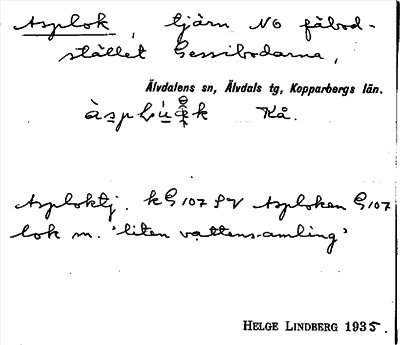 Asplok, tjärn NO fäbod-
stället Gessibodarna,
Älvdalens sn, Älvdals tg, Kopparbergs län.
Kå.
Asploktj. kG107 SV Asploken G107
lok m. 'liten vattensamling'
HELGE LINDBERG 1935.